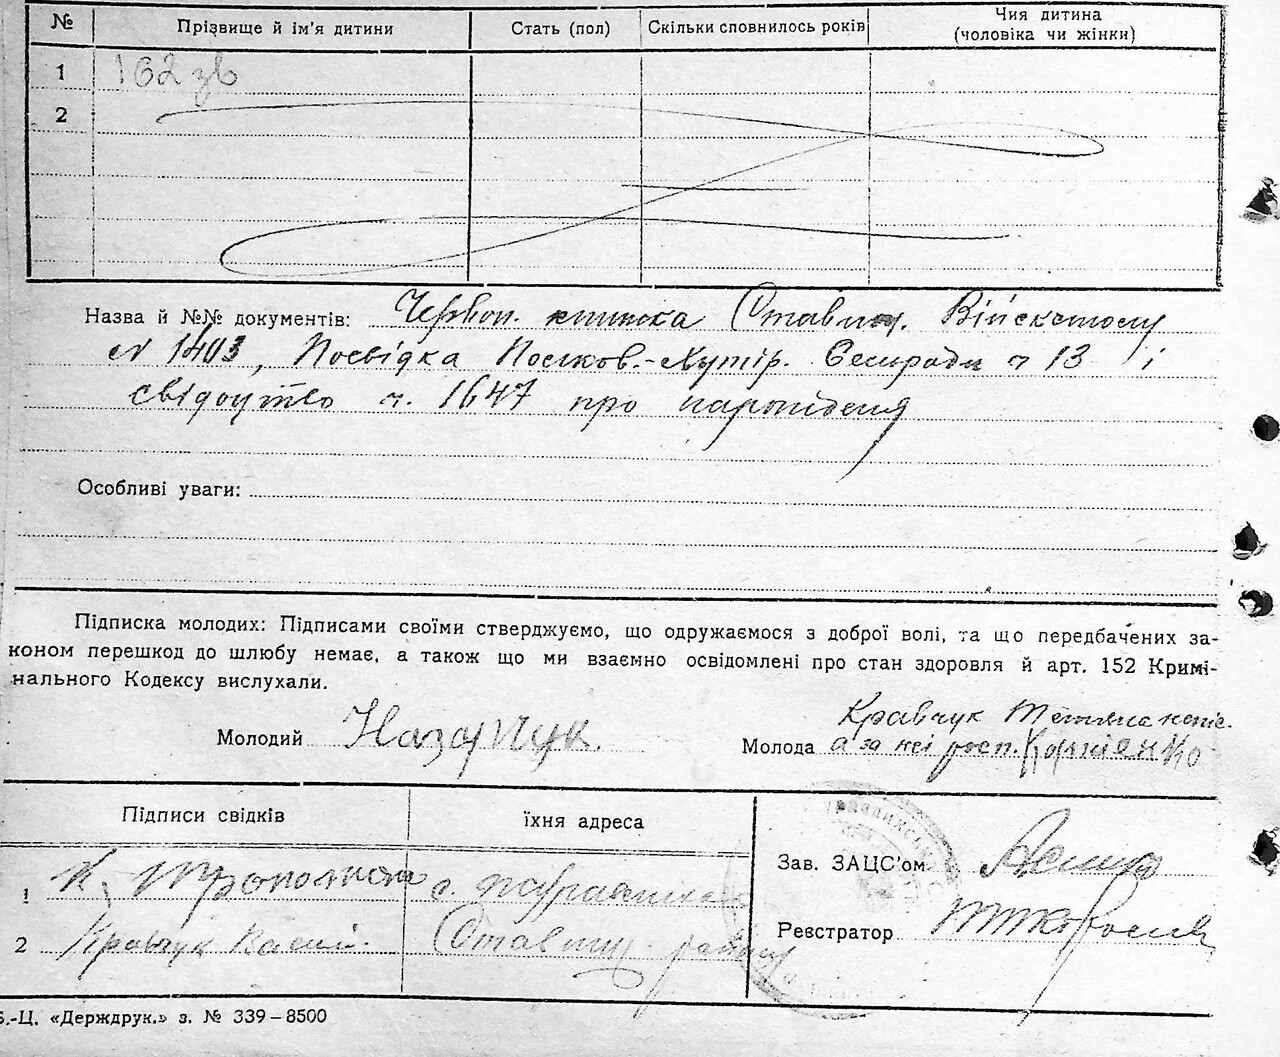 № Прізвище й ім'я дитини Стать (пол) Скільки сповнилось років Чия дитина (чоловіка чи жінки)
1 162 зв
2
Назва й №№ документів: Червон. книжка Ставищ. Військстолу
N 1403, Посвідка Хутір. Сельради ч 13 і
свідоцтво ч. 1647 про народження
Особливі уваги:
Підписка молодих: Підписами своїми стверджуємо, що одружаємося з доброї волі, та що передбачених за-
коном перешкод до шлюбу немає, а також що ми взаємно освідомлені про стан здоровля й арт. 152 Кримі-
нального Кодексу вислухали.
Кравчук Тетяна непис.
Молодий Назарчук. Молода а за неї росп. Корнієнко
Підписи свідків їхня адреса
Зав. ЗАЦС'ом
1 К. с.
2 Кравчук Васил. Ставищ. району
Реєстратор
.-Ц. «Держдрук.» з. № 339–8500